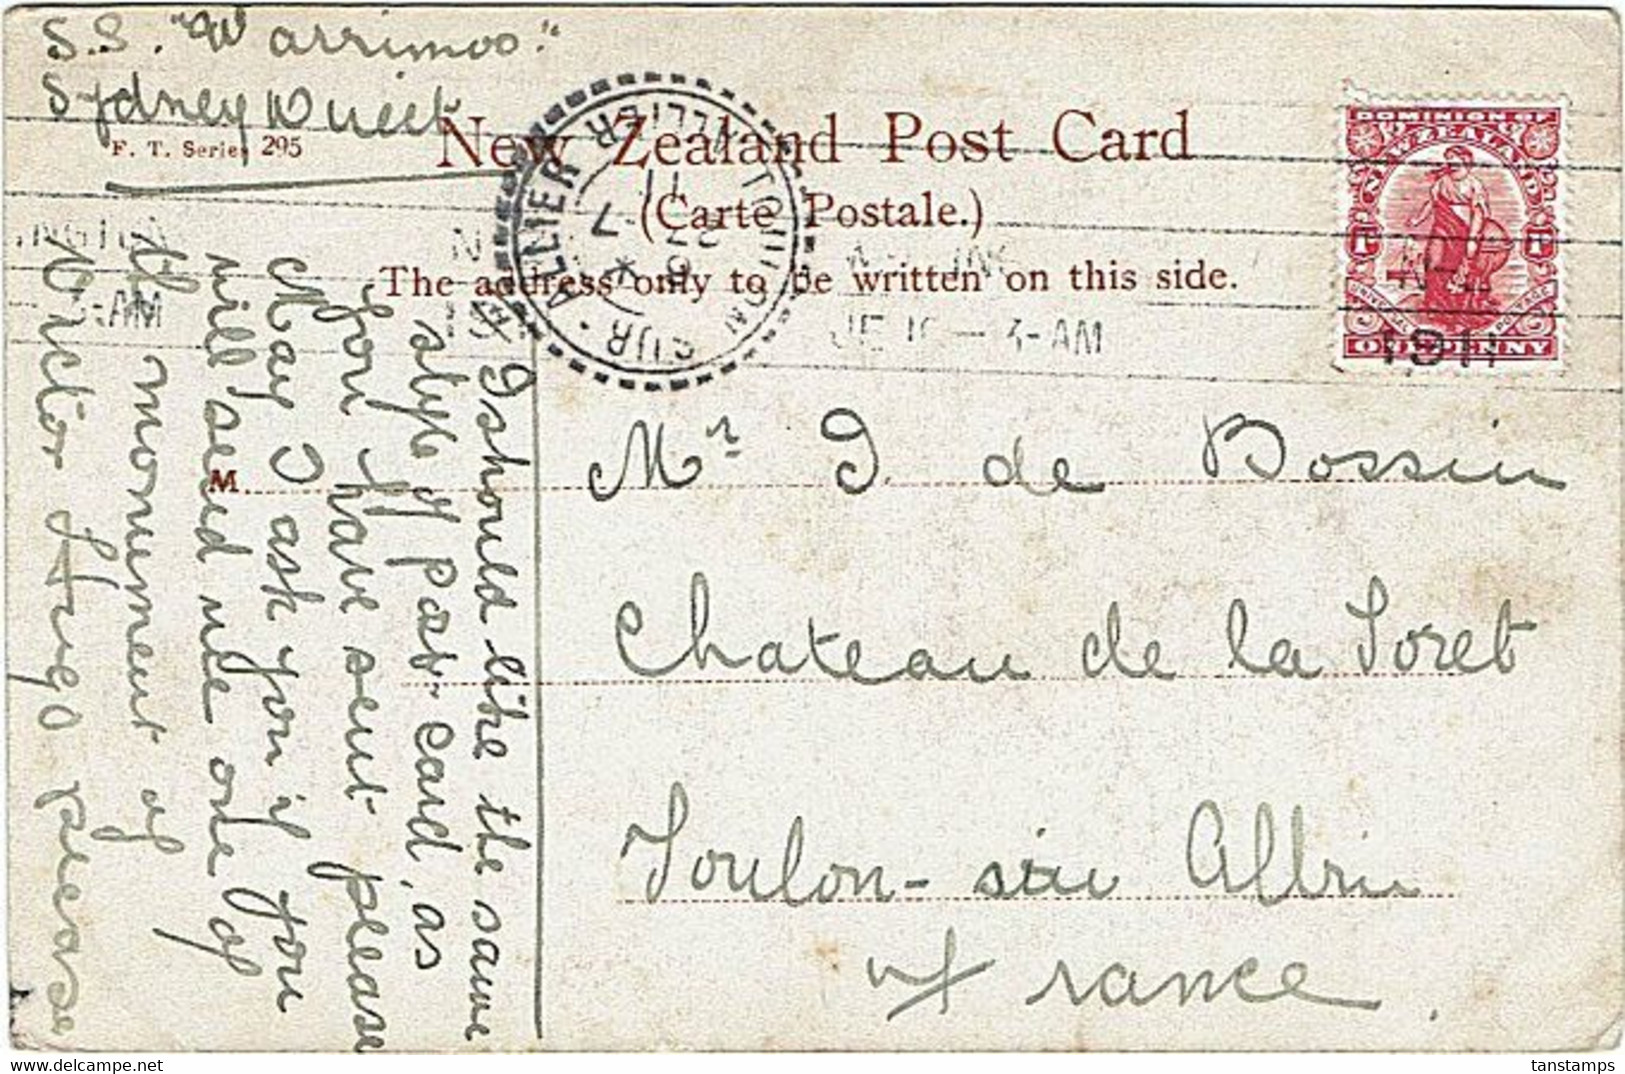 S.S. "Warrimoo."
Sydney
F. T. Series 295
New Zealand Post Card
(Carte Postale.)
The address only to be written on this side.
DOMINION OF
NEW ZEALAND
1D 1D
UNIVERSAL POSTAGE
ONE PENNY
1911
JE 16 — 3-AM
3-AM
SUR · ALLIER
ALLIER
27
7
11
M
Mr. J. de Bossin
Chateau de la Foret
Toulon-sur Allier
France.
I should like the same
style of post card, as
you have sent please
May I ask you if you
will send me one of
the monument of
Victor Hugo please
tanstamps